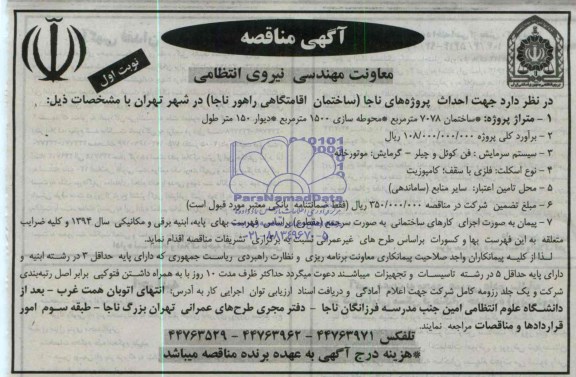 آگهی مناقصه
نوبت اول
معاونت مهندسی نیروی انتظامی
در نظر دارد جهت احداث پروژه‌های ناجا (ساختمان اقامتگاهی راهور ناجا) در شهر تهران با مشخصات ذیل:
۱ - متراژ پروژه: *ساختمان ۷۰۷۸ مترمربع *محوطه سازی ۱۵۰۰ مترمربع *دیوار ۱۵۰ متر طول
۲ - برآورد کلی پروژه ۱۰۸/۰۰۰/۰۰۰/۰۰۰ ریال
۳ - سیستم سرمایش : فن کوئل و چیلر - گرمایش: موتورخانه
۴ - نوع اسکلت: فلزی با سقف؛ کامپوزیت
۵ - محل تامین اعتبار: سایر منابع (ساماندهی)
۶ - مبلغ تضمین شرکت در مناقصه ۳۵۰/۰۰۰/۰۰۰ ریال (فقط ضمانتنامه بانکی معتبر مورد قبول است)
۷ - پیمان به صورت اجرای کارهای ساختمانی به صورت سرجمع (مقطوع) براساس فهرست بهای پایه، ابنیه برقی و مکانیکی سال ۱۳۹۴ و کلیه ضرایب
متعلقه به این فهرست بها و کسورات براساس طرح های غیرعمرانی نسبت به برگزاری تشریفات مناقصه اقدام نماید.
لذا از کلیه پیمانکاران واجد صلاحیت پیمانکاری معاونت برنامه ریزی و نظارت راهبردی ریاست جمهوری که دارای پایه حداقل ۳ در رشته ابنیه و
دارای پایه حداقل ۵ در رشته تاسیسات و تجهیزات میباشند دعوت میگردد حداکثر ظرف مدت ۱۰ روز با به همراه داشتن فتوکپی برابر اصل رتبه‌بندی
شرکت و یک جلد رزومه کامل شرکت جهت اعلام آمادگی و دریافت اسناد ارزیابی توان اجرایی کار به آدرس: انتهای اتوبان همت غرب - بعد از
دانشگاه علوم انتظامی امین جنب مدرسه فرزانگان ناجا - دفتر مجری طرح‌های عمرانی تهران بزرگ ناجا - طبقه سوم امور
قراردادها و مناقصات مراجعه نمایند.
تلفکس ۴۴۷۶۳۹۷۱ - ۴۴۷۶۳۹۶۲ - ۴۴۷۶۳۵۲۹
*هزینه درج آگهی به عهده برنده مناقصه میباشد
ParsNamadData
۰۲۱-۸۸۳۴۹۶۷۰-۵